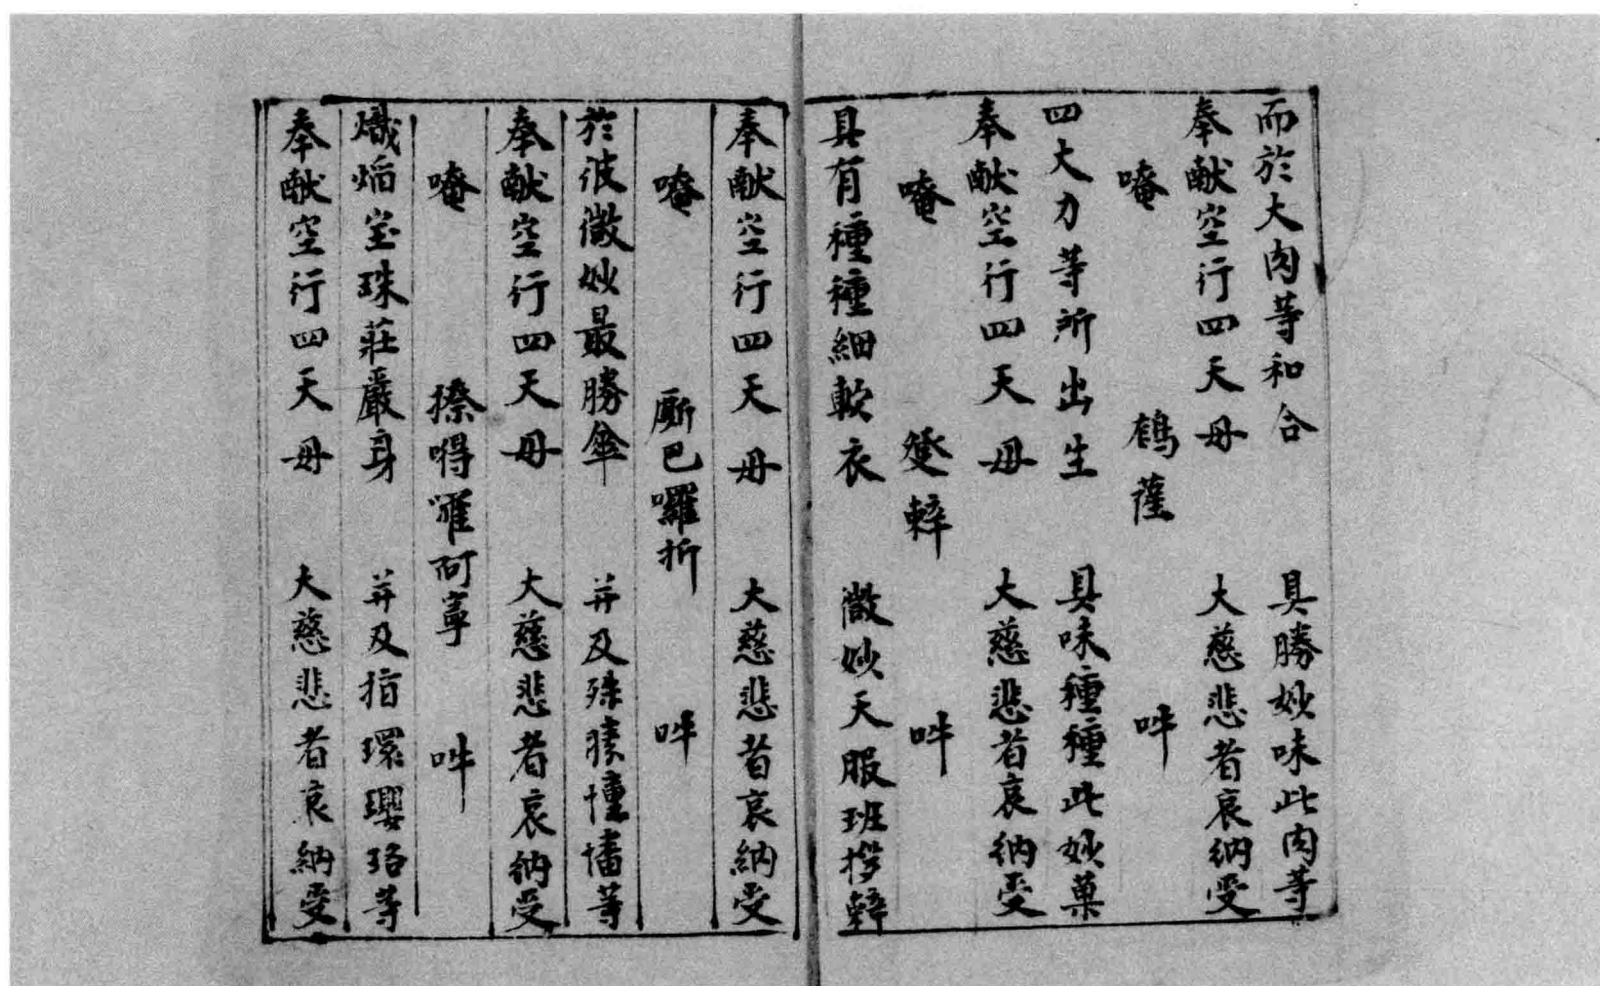 而於大肉等和合 具勝妙味此肉等
奉献空行四天母 大慈悲者哀納受
唵 鶴薩 吽
四大力等所出生 具味種種此妙菓
奉献空行四天母 大慈悲者哀納受
唵 吽
具有種種細軟衣 微妙天服班
奉献空行四天母 大慈悲者哀納受
唵 厮巴囉折 吽
於彼微妙最勝傘 并及殊勝幢幡等
奉献空行四天母 大慈悲者哀納受
唵 捺嘚囉阿寧 吽
熾焰宝珠莊嚴身 并及指環瓔珞等
奉献空行四天母 大慈悲者哀納受